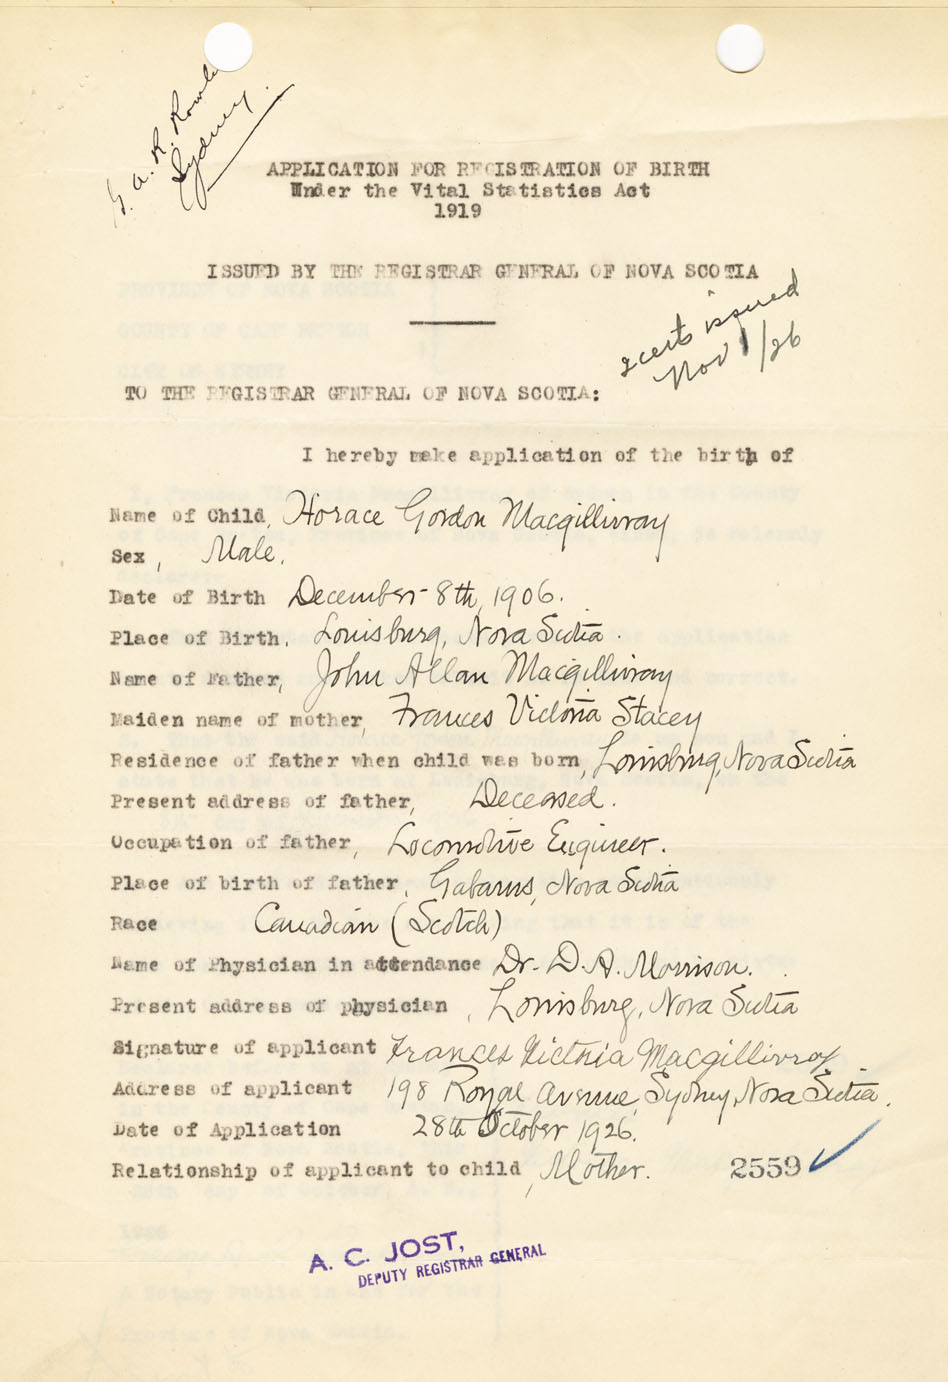 G. A. R. Rowle
Sydney.
APPLICATION FOR REGISTRATION OF BIRTH
Under the Vital Statistics Act
1919
ISSUED BY THE REGISTRAR GENERAL OF NOVA SCOTIA
2 certs issued
Nov 1/26
TO THE REGISTRAR GENERAL OF NOVA SCOTIA:
I hereby make application of the birth of
Name of Child, Horace Gordon Macgillivray
Sex, Male.
Date of Birth December 8th, 1906.
Place of Birth, Louisburg, Nova Scotia.
Name of Father, John Allan Macgillivray
Maiden name of mother, Frances Victoria Stacey
Residence of father when child was born, Louisburg, Nova Scotia
Present address of father, Deceased.
Occupation of father, Locomotive Engineer.
Place of birth of father, Gabarus, Nova Scotia
Race Canadian (Scotch)
Name of Physician in attendance Dr. D. A. Morrison.
Present address of physician, Louisburg, Nova Scotia
Signature of applicant Frances Victoria Macgillivray
Address of applicant 198 Royal Avenue, Sydney, Nova Scotia.
Date of Application 28th October 1926.
Relationship of applicant to child, Mother. 2559
A. C. JOST,
DEPUTY REGISTRAR GENERAL